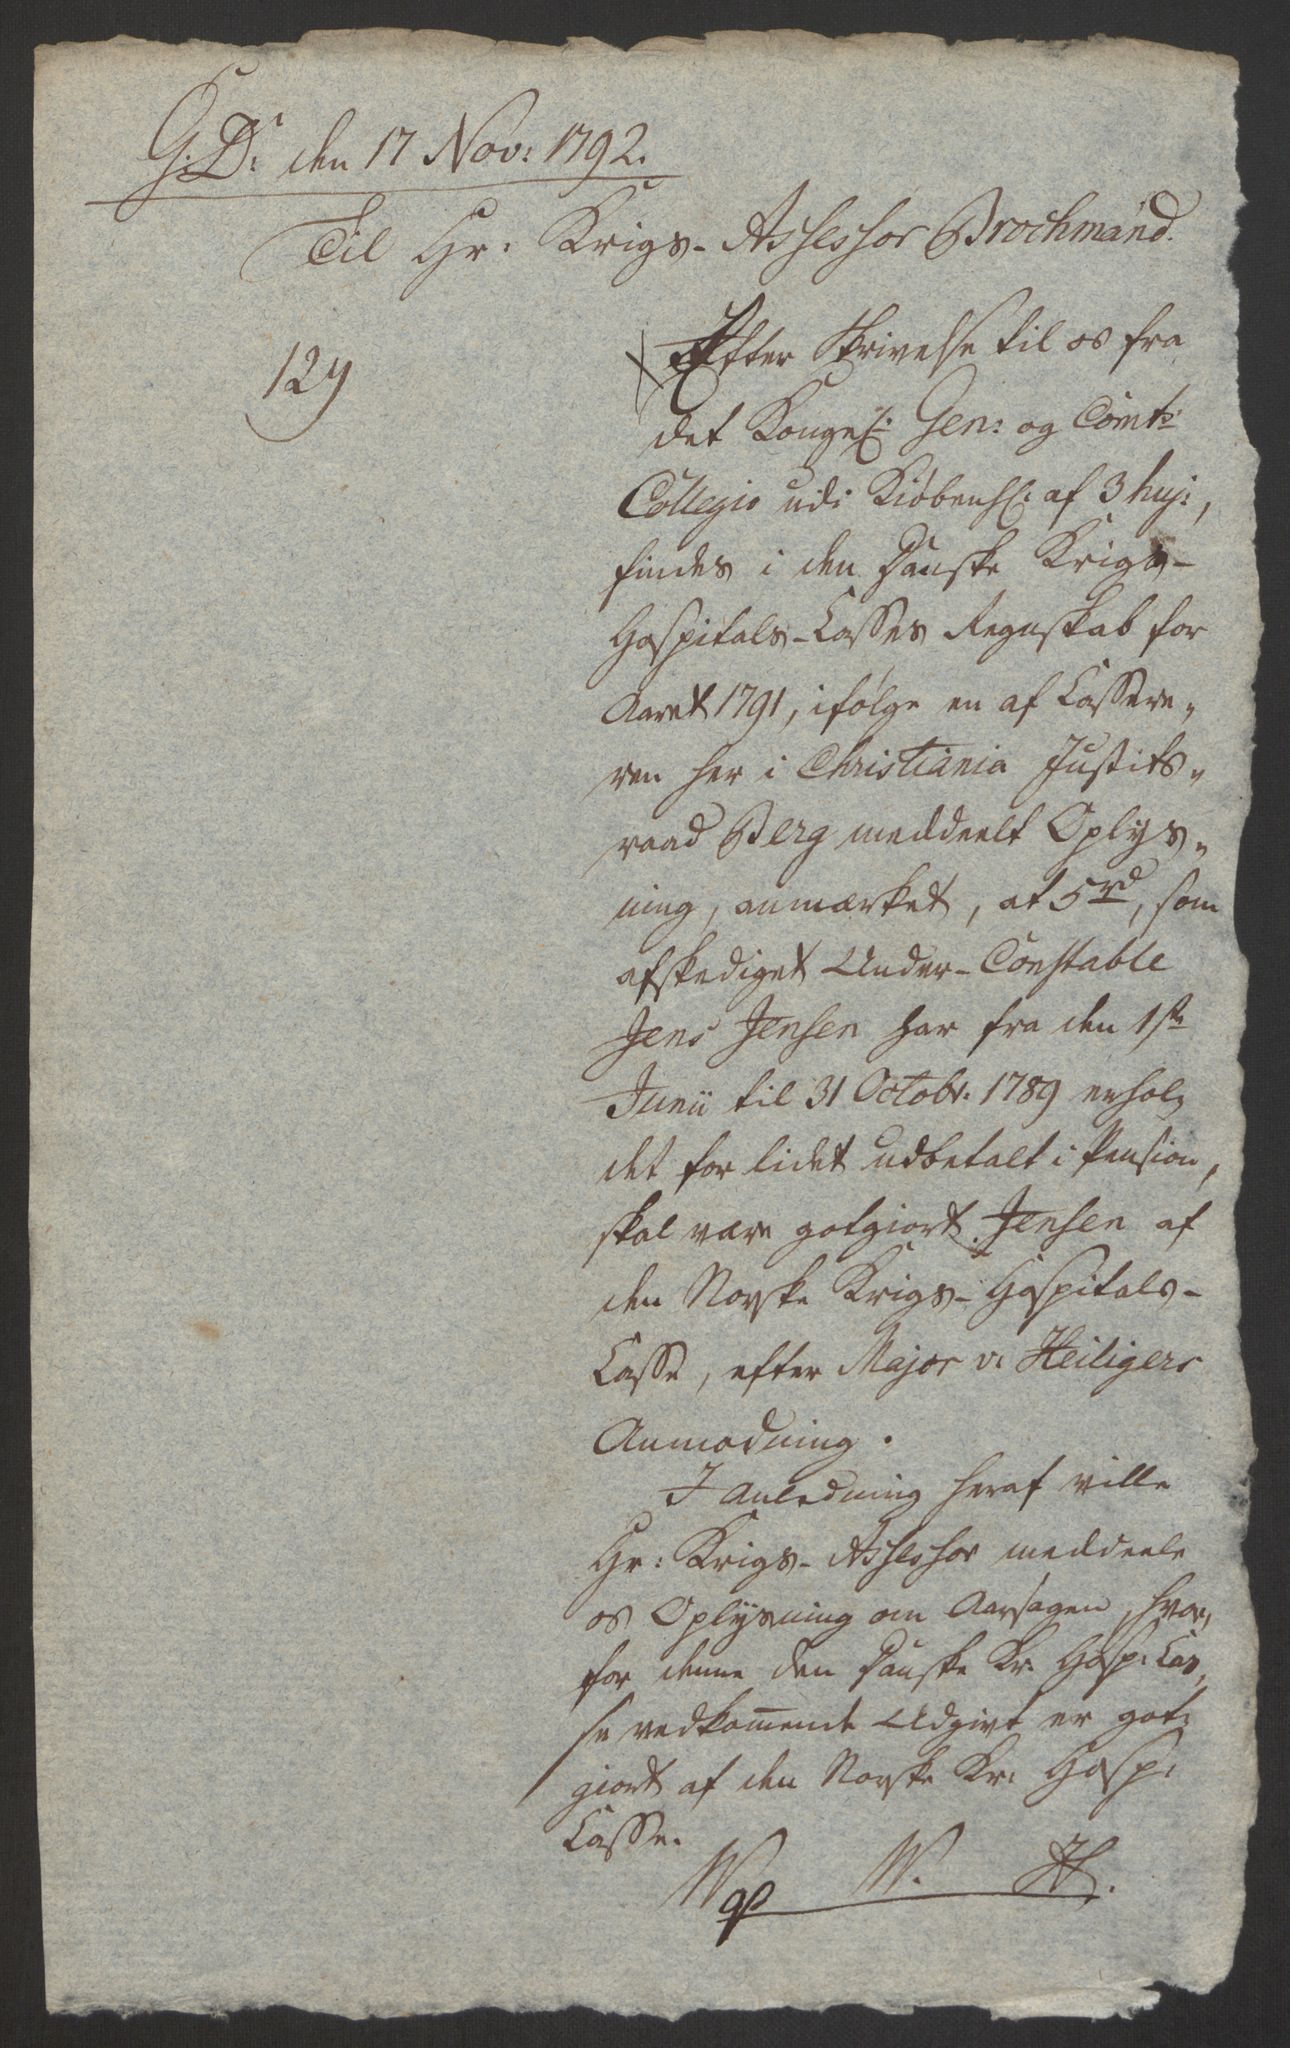 G: D: den 17 Nov: 1792.
Til Hr: Krigs-Assessor Brochmand.
129
Efter Skrivelse til os fra
det Kongel: Gen: og Comts:
Collegio udi Kiøbenh: af 3 huj:,
findes i den Danske Krigs-
Hospitals-Casses Regnskab for
Aaret 1791, ifølge en af Cassere„
ren her i Christiania Justits„
raad Berg meddeelt Oplys„
ning, anmærket, at 5 rd, som
afskediget Under-Constable
Jens Jensen har fra den 1ste
Junii til 31 Octobr: 1789 erhol„
det for lidet udbetalt i Pension,
skal være gotgiort Jensen af
den Norske Krigs-Hospitals-
Casse, efter Major v: Heiligers
Anmodning.
I Anledning heraf ville
Hr: Krigs-Assessor meddeele
os Oplysning om Aarsagen, hvor„
for denne den Danske Kr: Hosp: Cas„
se vedkommende Udgivt er got„
giort af den Norske Kr: Hosp:
Casse.
W W. H.